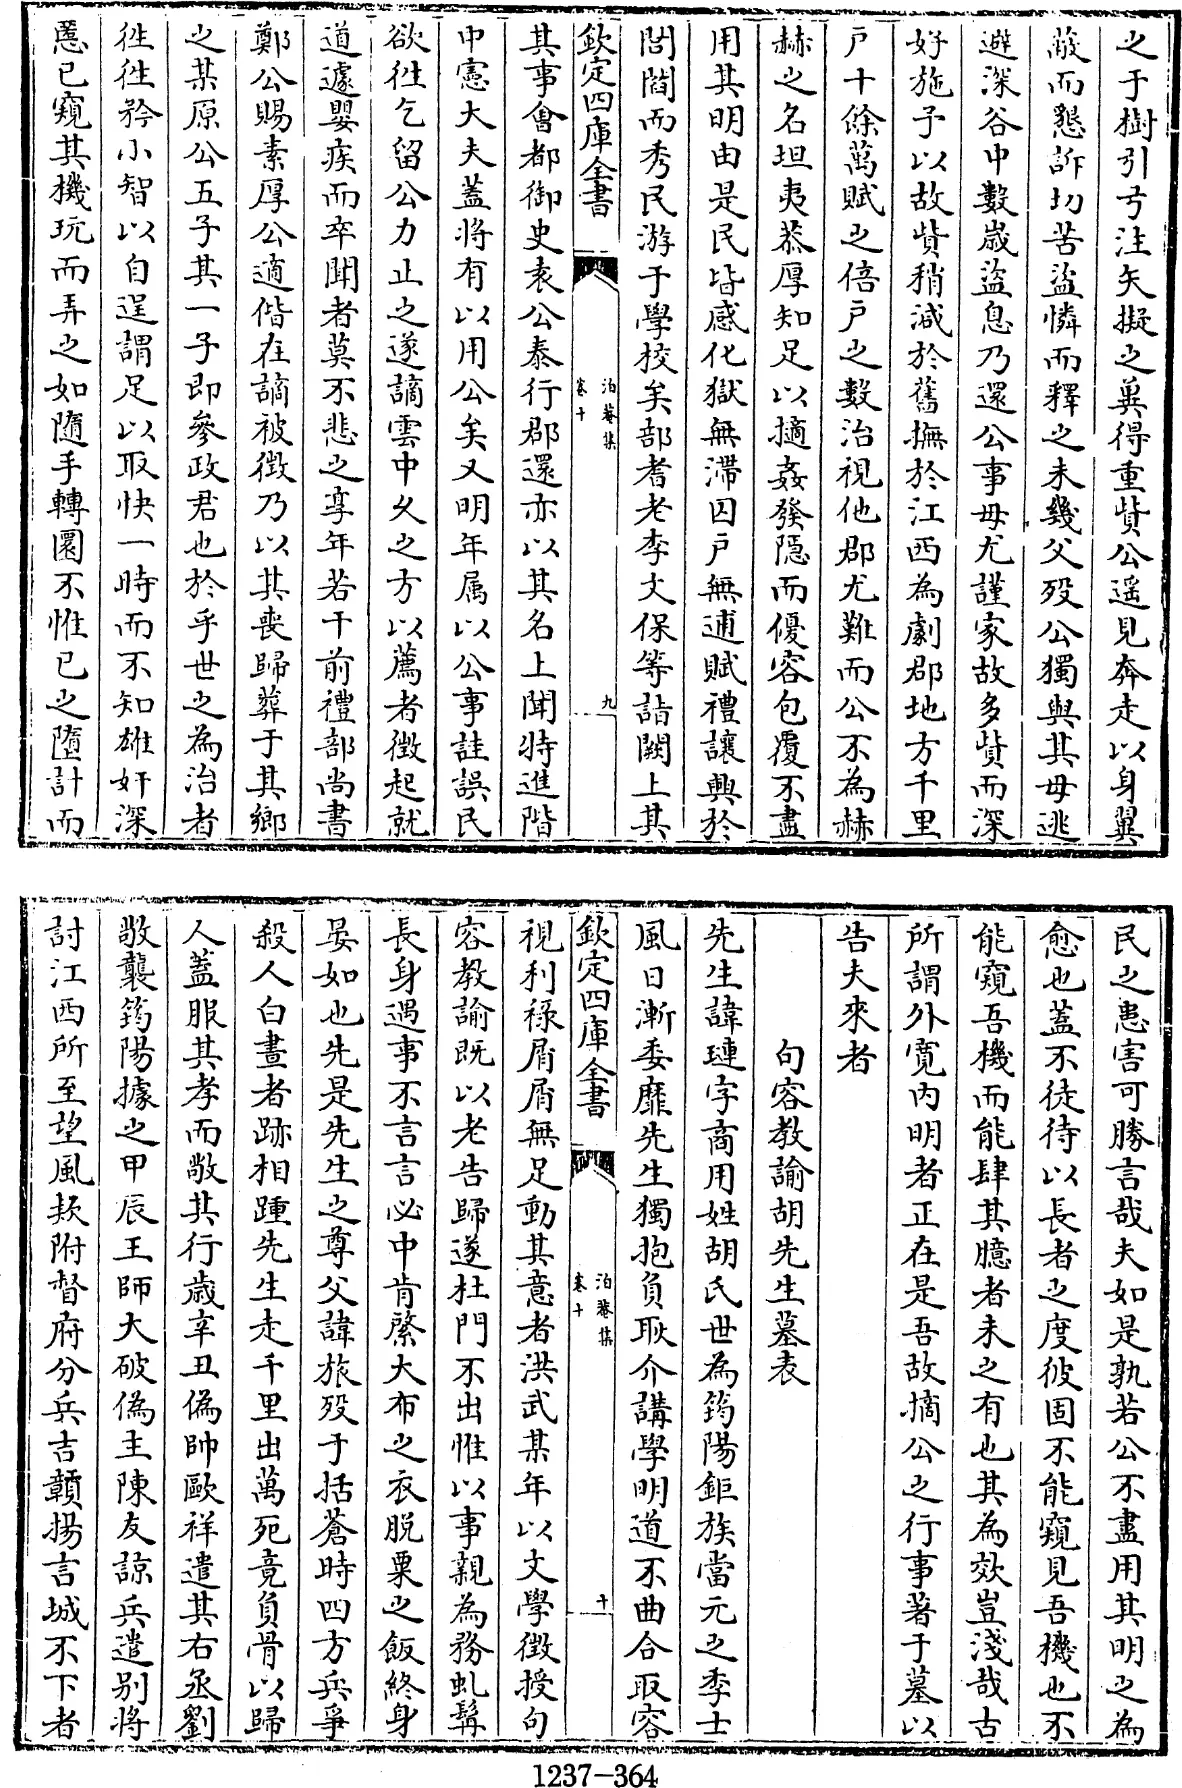 之于樹引弓注矢擬之冀得重貲公遥見奔走以身翼
蔽而懇訴切苦盜憐而釋之未幾父歿公獨與其母逃
避深谷中數歲盜息乃還公事母尤謹家故多貲而深
好施予以故貲稍減於舊撫於江西為劇郡地方千里
戶十餘萬賦之倍戶之數治視他郡尤難而公不為赫
赫之名坦夷恭厚知足以擿姦發隱而優容包覆不盡
用其明由是民皆感化獄無滯囚戶無逋賦禮讓興於
閭閻而秀民游于學校矣部耆老李文保等詣闕上其
欽定四庫全書
泊菴集
卷十
九
其事會都御史袁公泰行郡還亦以其名上聞特進階
中憲大夫蓋將有以用公矣又明年属以公事詿誤民
欲徃乞留公力止之遂謫雲中乆之方以薦者徴起就
道遽嬰疾而卒聞者莫不悲之享年若干前禮部尚書
鄭公賜素厚公適偕在謫被徴乃以其喪歸葬于其鄉
之某原公五子其一子即參政君也於乎世之為治者
徃徃矜小智以自逞謂足以取快一時而不知雄奸深
慝已窺其機玩而弄之如隨手轉圜不惟已之墮計而
民之患害可勝言哉夫如是孰若公不盡用其明之為
愈也蓋不徒待以長者之度彼固不能窺見吾機也不
能窺吾機而能肆其臆者未之有也其為效豈淺哉古
所謂外寛内明者正在是吾故摘公之行事著于墓以
告夫來者
句容教諭胡先生墓表
先生諱璉字商用姓胡氏世為筠陽鉅族當元之季士
風日漸委靡先生獨抱負耿介講學明道不曲合取容
欽定四庫全書
泊菴集
卷十
十
視利祿屑屑無足動其意者洪武某年以文學徴授句
容教諭既以老告歸遂杜門不出惟以事親為務虬髯
長身遇事不言言必中肯綮大布之衣脱粟之飯終身
晏如也先是先生之尊父諱旅歿于括蒼時四方兵爭
殺人白晝者跡相踵先生走千里出萬死竟負骨以歸
人蓋服其孝而敬其行歳辛丑偽帥歐祥遣其右丞劉
敬襲筠陽據之甲辰王師大破偽主陳友諒兵遣別將
討江西所至望風欵附督府分兵吉贑揚言城不下者
1237-364